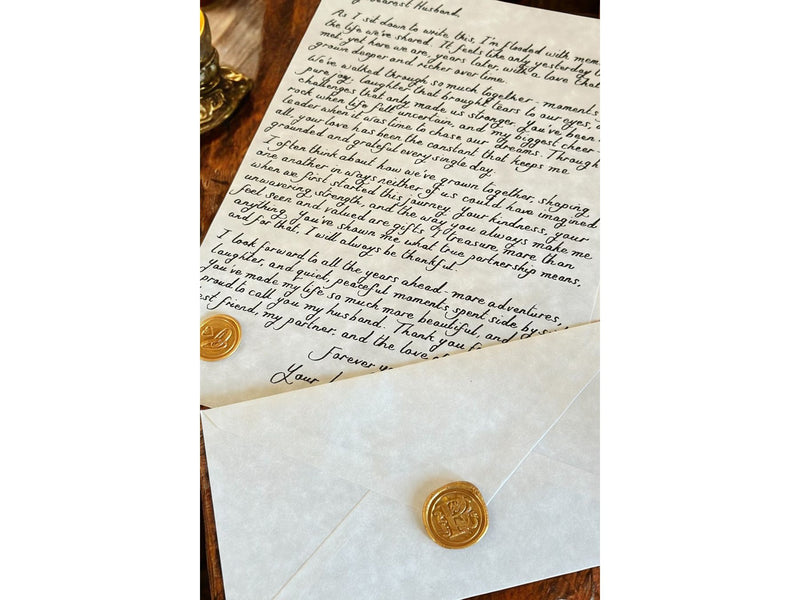 Dearest Husband,
As I sit down to write this, I'm flooded with
the life we've shared. It feels like only yesterday
met, yet here we are, years later, with a love that
grown deeper and richer over time.
We've walked through so much together - moments
pure joy, laughter that brought tears to our eyes,
challenges that only made us stronger. You've been
rock when life felt uncertain, and my biggest cheer
leader when it was time to chase our dreams. Through
all, your love has been the constant that keeps me
grounded and grateful every single day.
I often think about how we've grown together, shaping
one another in ways neither of us could have imagined
when we first started this journey. Your kindness, your
unwavering strength, and the way you always make me
feel seen and valued are gifts I treasure more than
anything. You've shown me what true partnership means,
and for that, I will always be thankful.
I look forward to all the years ahead - more adventures,
laughter, and quiet, peaceful moments spent side by
You've made my life so much more beautiful, and
proud to call you my husband. Thank you
friend, my partner, and the love
Forever
Your